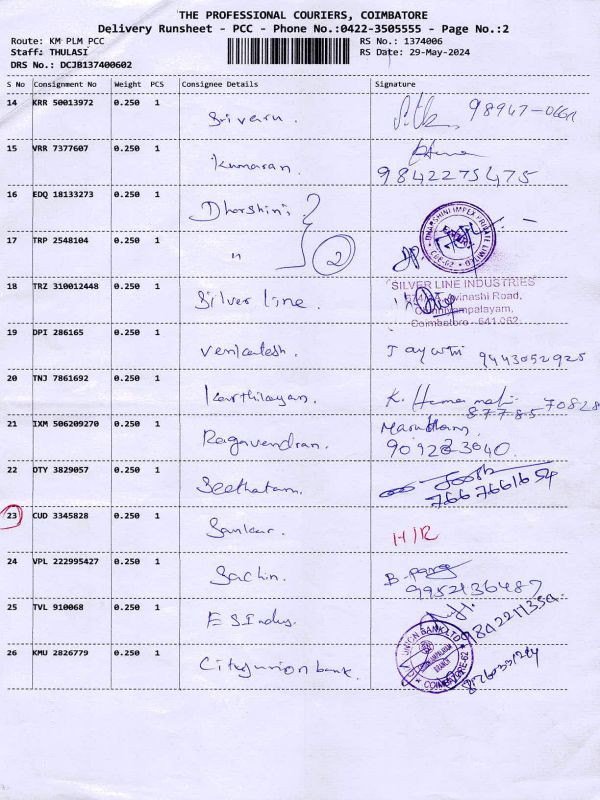 THE PROFESSIONAL COURIERS, COIMBATORE
Delivery Runsheet - PCC - Phone No.:0422-3505555 - Page No.:2
Route: KM PLM PCC
Staff: THULASI
DRS No.: DCJB137400602
RS No.: 1374006
RS Date: 29-May-2024
S No Consignment No Weight PCS Consignee Details Signature
14 KRR 50013972 0.250 1 Srivaru.
15 VRR 7377607 0.250 1 Kumaran. 9842275475
16 EDQ 18133273 0.250 1 Dharshini
17 TRP 2548104 0.250 1 " 2
DHARSHINI IMPEX PRIVATE LIMITED
18 TRZ 310012448 0.250 1 Silver line.
SILVER LINE INDUSTRIES
Avinashi Road,
Coimbatore - 641 062.
19 DPI 286165 0.250 1 Venkatesh. Jayanthi 9443052925
20 TNJ 7861692 0.250 1 Karthilayan. K. Hema
21 IXM 506209270 0.250 1 Ragavendran.
22 DTY 3829057 0.250 1 Seethatam.
23 CUD 3345828 0.250 1 Sankar. H/R
24 VPL 222995427 0.250 1 Sachin. 9952136487
25 TVL 910068 0.250 1 ESIndus.
26 KMU 2826779 0.250 1 Cityunion bank.
UNION BANK LTD
BRANCH
COIMBATORE-62